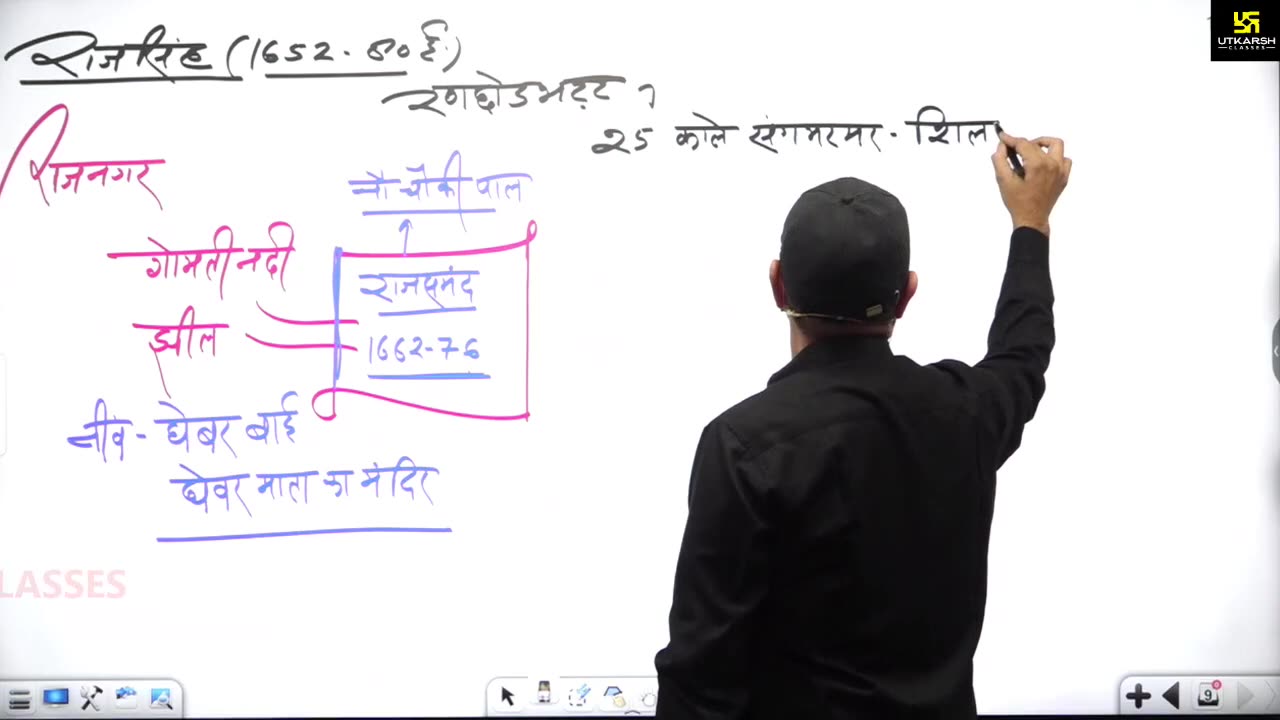 राजसिंह (1652-80 ई.)
रणछोड भट्ट
25 काले संगमरमर - शिल
राजनगर
नौ चौकी पाल
गोमती नदी
राजसमंद
झील
1662-76
नींव - घेवर बाई
घेवर माता का मंदिर
LASSES
UTKARSH
CLASSES
9